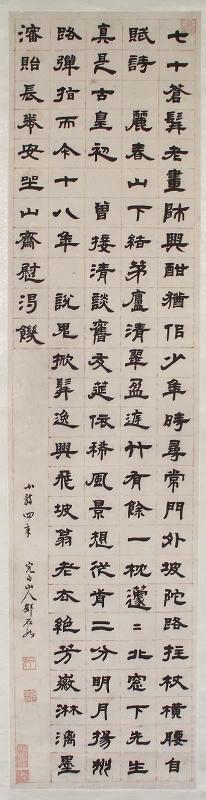 七十蒼髯老畫師興酣猶作少年時尋常門外坡陀路拄杖橫腰自
賦詩 麗春山下結茅廬清翠盈庭竹有餘一枕蘧〻北窗下先生
真是古皇初 曾接清談舊友筵依稀風景想從前二分明月揚州
路彈指而今十八年 說鬼掀髯逸興飛坡翁老去絕芳徽淋漓墨
瀋貽長卷安坐山齋慰渴饑
小詩四章 完白山人鄧石如